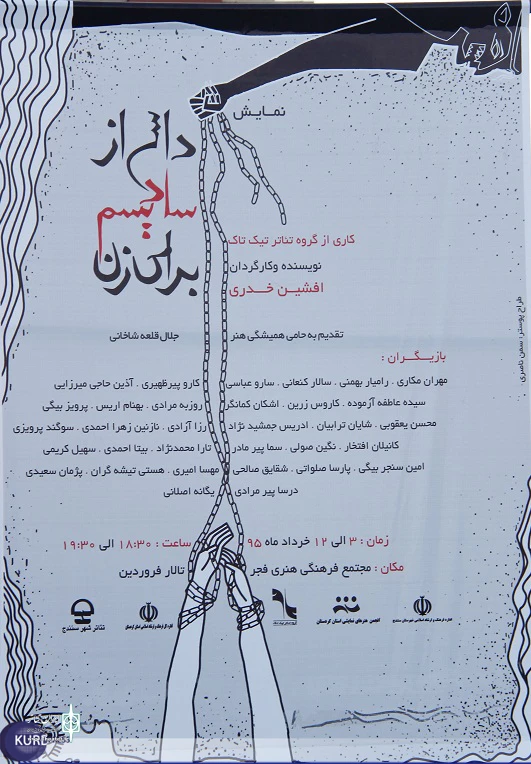 نمایش
داشتن از
سادیسم
برای زن
کاری از گروه تئاتر تیک تاک
نویسنده وکارگردان
افشین خدری
تقدیم به حامی همیشگی هنر جلال قلعه شاخانی
بازیگران :
مهران مکاری . رامیار بهمنی . سالار کنعانی . سارو عباسی . کارو پیرظهیری . آذین حاجی میرزایی
سیده عاطفه آزموده . کاروس زرین . اشکان کمانگر . روزبه مرادی . بهنام اریس . پرویز بیگی
محسن یعقوبی . شایان ترابیان . ادریس جمشید نژاد . رزا آزادی . نازنین زهرا احمدی . سوگند پرویزی
کانیلان افتخار . نگین صولی . سما پیر مادر . تارا محمدنژاد . بیتا احمدی . سهیل کریمی
امین سنجر بیگی . پارسا صلواتی . شقایق صالحی . مهسا امیری . هستی تیشه گران . پژمان سعیدی
درسا پیر مرادی . یگانه اصلانی
زمان : ۳ الی ۱۲ خرداد ماه ۹۵ ساعت : ۱۸:۳۰ الی ۱۹:۳۰
مکان : مجتمع فرهنگی هنری فجر تالار فروردین
اداره فرهنگ و ارشاد اسلامی شهرستان سنندج
انجمن هنرهای نمایشی استان کردستان
تئاتر شهر سنندج
طراح پوستر: سمن ناصری
KURD